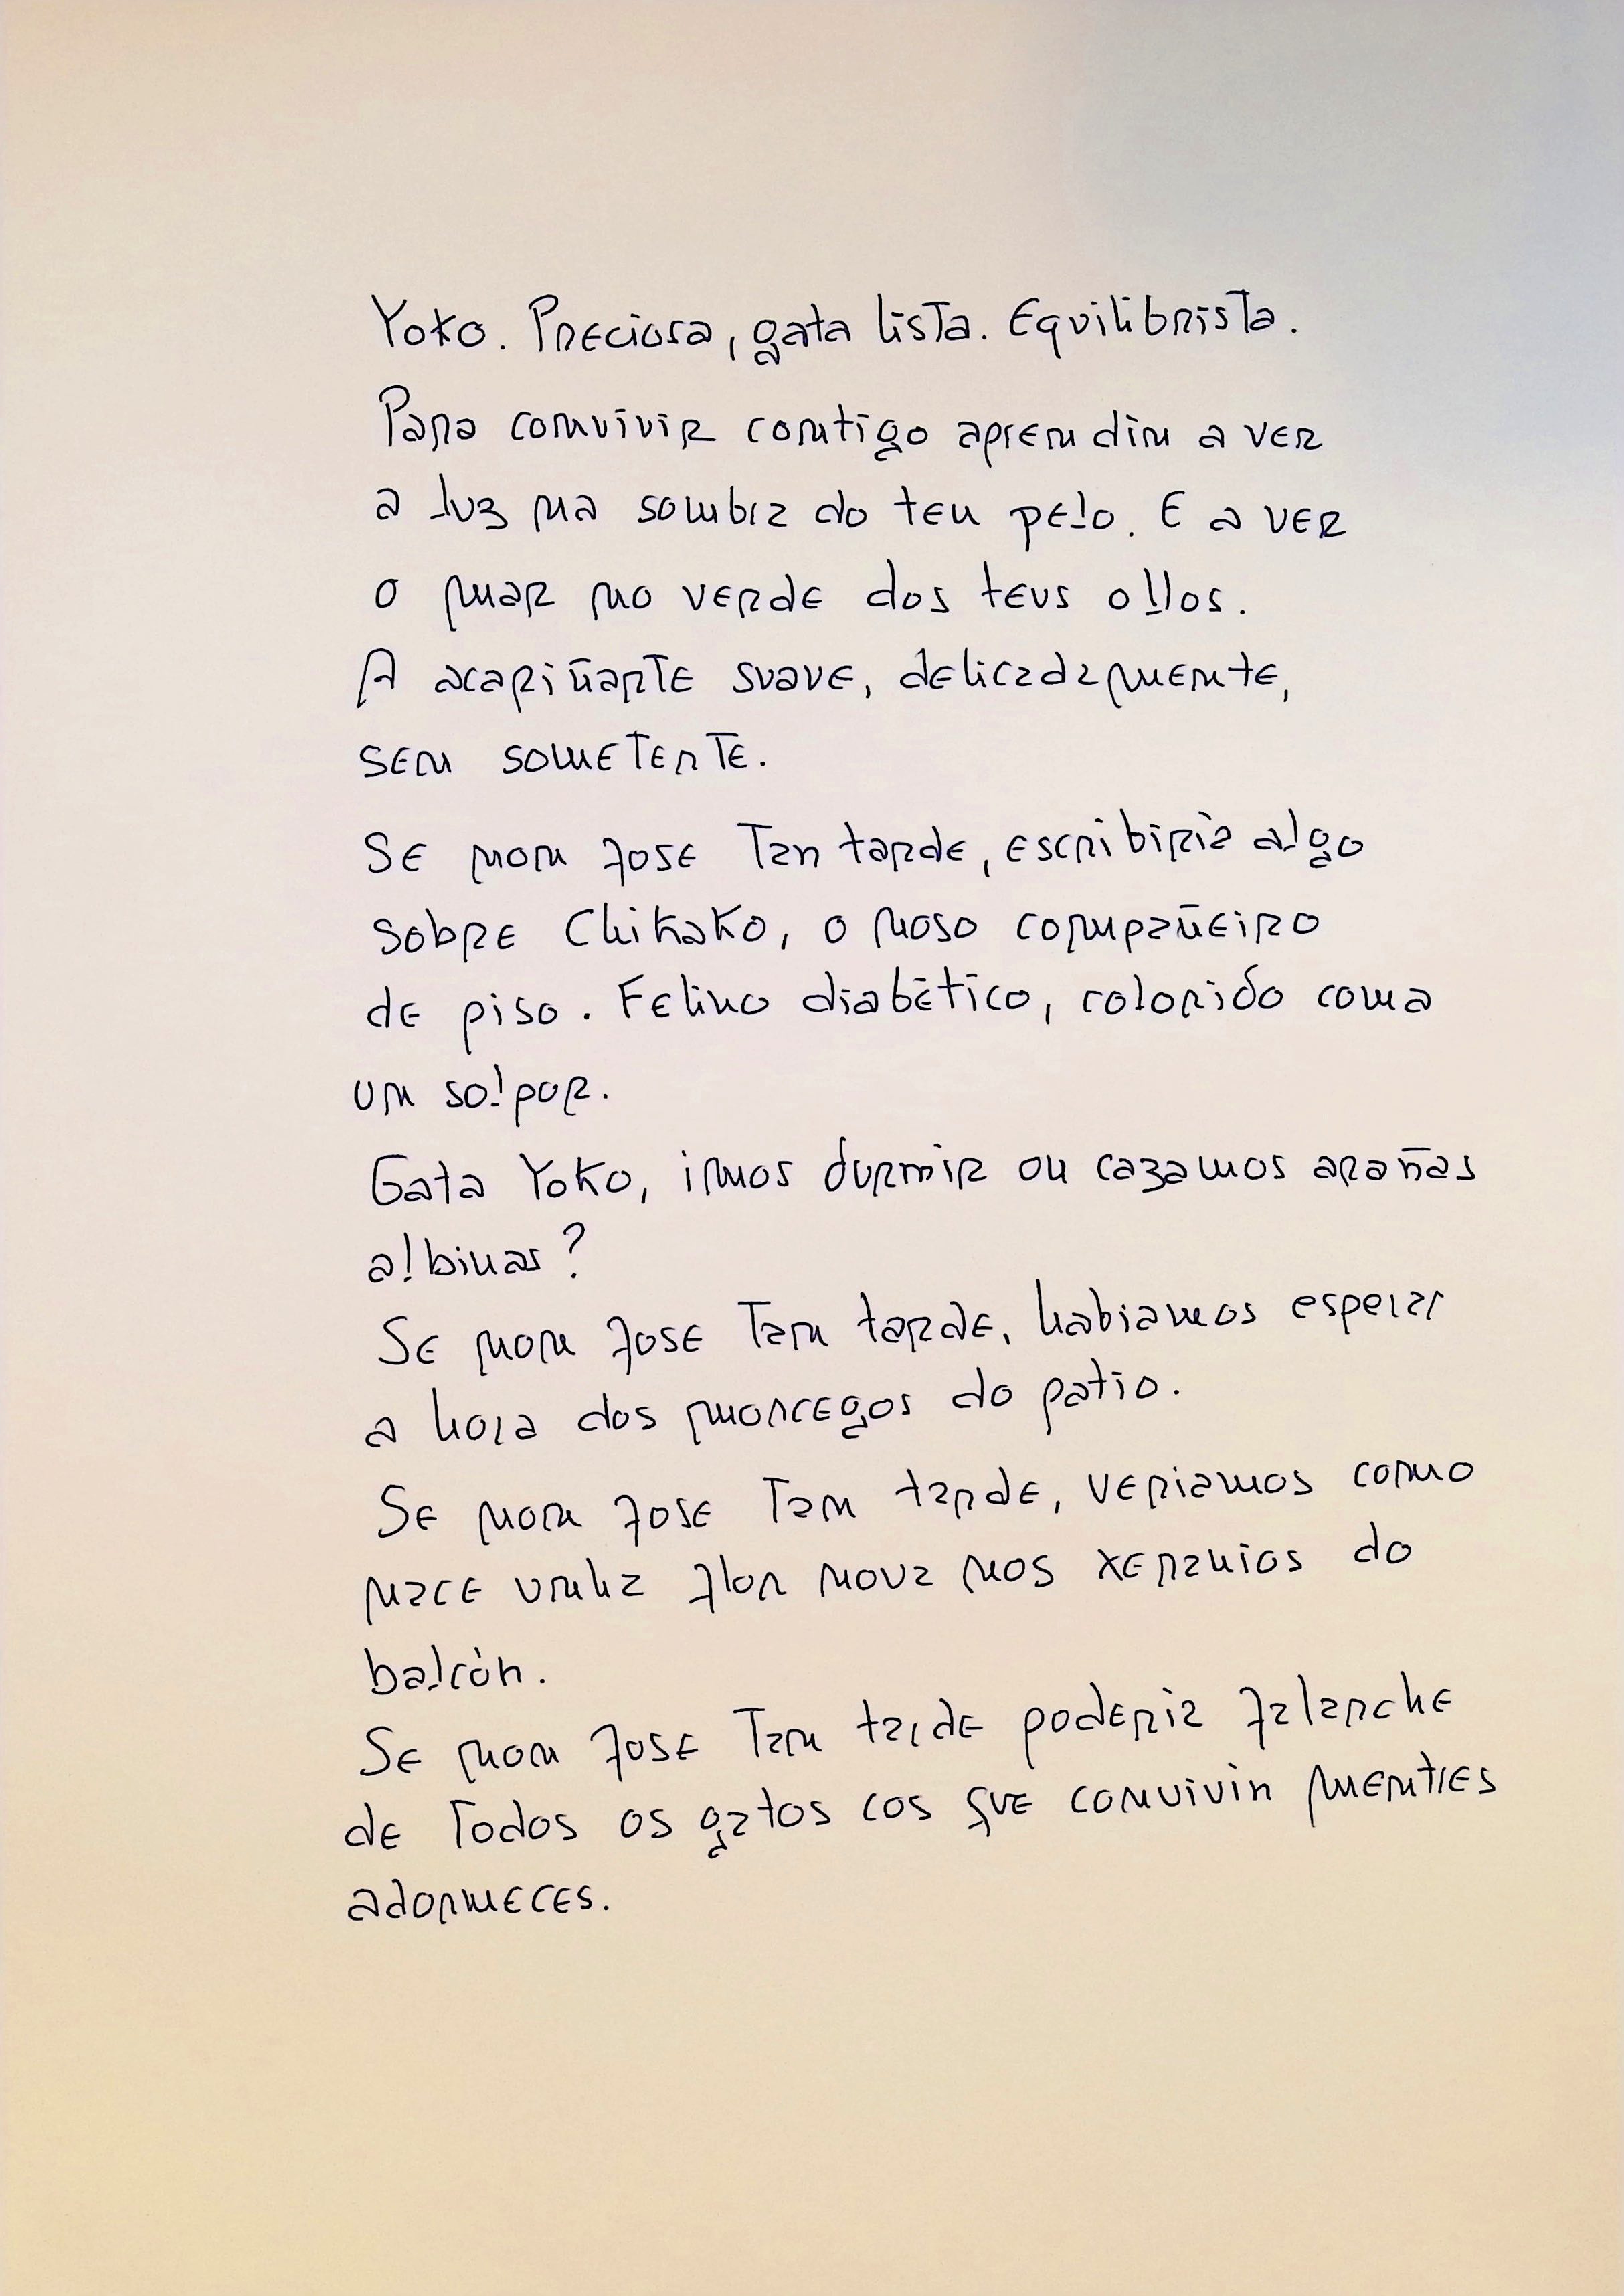 Yoko. Preciosa, gata lista. Equilibrista.
Para convivir contigo aprendin a ver
a luz na sombra do teu pelo. E a ver
o mar no verde dos teus ollos.
A acariñarte suave, delicadamente,
sen someterte.
Se non fose tan tarde, escribiría algo
sobre Chikako, o noso compañeiro
de piso. Felino diabético, colorido coma
un solpor.
Gata Yoko, imos durmir ou cazamos arañas
albinas?
Se non fose tan tarde, habiamos esperar
a hora dos morcegos do patio.
Se non fose tan tarde, veriamos como
nace unha flor nova nos xeranios do
balcón.
Se non fose tan tarde podería falarche
de todos os gatos cos que convivín mentres
adormeces.